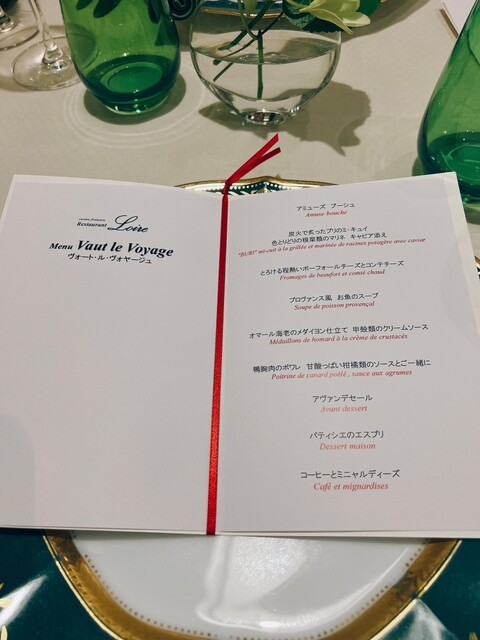 cuisine française
Restaurant Loire
Menu Vaut le Voyage
ヴォート・ル・ヴォヤージュ
アミューズ ブーシュ
Amuse-bouche
炭火で炙ったブリのミ・キュイ
色とりどりの根菜類のマリネ キャビア添え
"BURI" mi-cuit à la grillée et marinée de racines potagère avec caviar
とろける程熱いボーフォールチーズとコンテチーズ
Fromages de beaufort et comté chaud
プロヴァンス風 お魚のスープ
Soupe de poisson provençal
オマール海老のメダイヨン仕立て 甲殻類のクリームソース
Médaillons de homard à la crème de crustacés
鴨胸肉のポワレ 甘酸っぱい柑橘類のソースとご一緒に
Poitrine de canard poêlé , sauce aux agrumes
アヴァンデセール
Avant dessert
パティシエのエスプリ
Dessert maison
コーヒーとミニャルディーズ
Café et mignardises